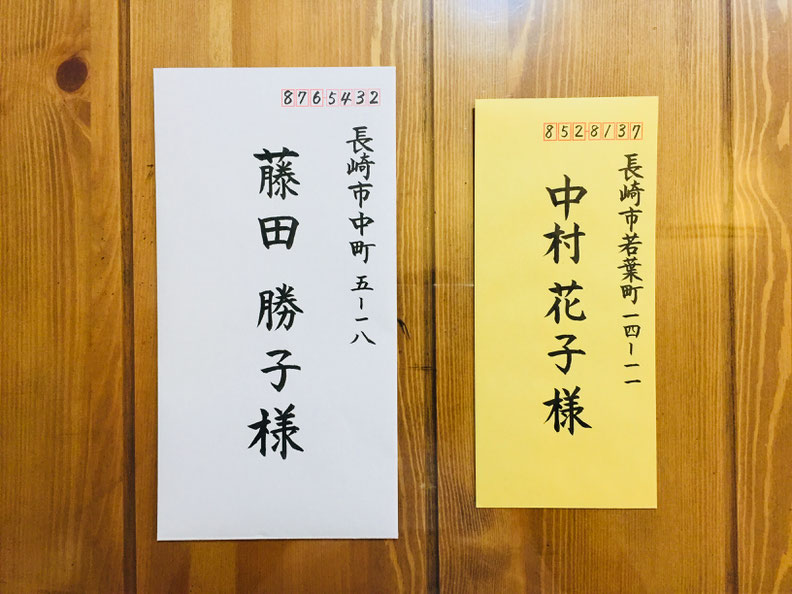 8765432
長崎市中町 五ー一八
藤田 勝子様
8528137
長崎市若葉町 一四ー一一
中村 花子様